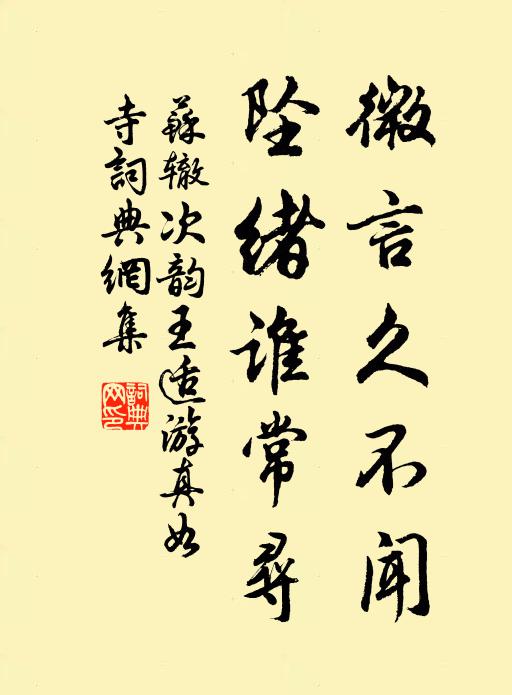 微言久不闻
坠绪谁常寻
苏辙次韵王适游真如
寺词典網集
詞典网印